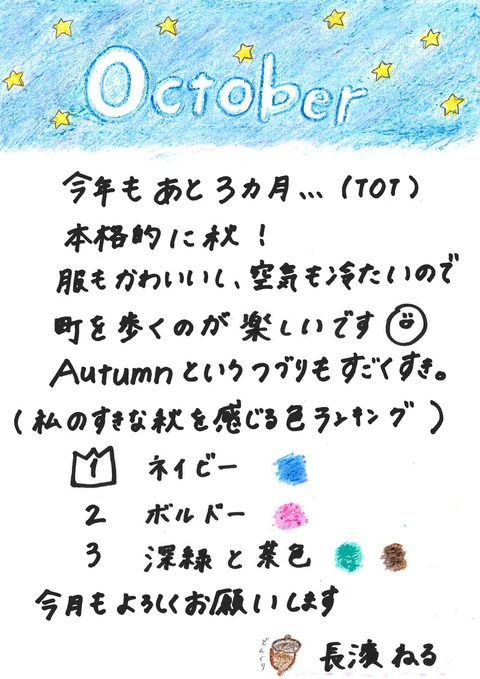 October
今年もあと3カ月...(TOT)
本格的に秋！
服もかわいいし、空気も冷たいので
町を歩くのが楽しいです
Autumnというつづりもすごくすき。
(私のすきな秋を感じる色ランキング)
1 ネイビー
2 ボルドー
3 深緑と茶色
今月もよろしくお願いします
どんぐり 長濱ねる